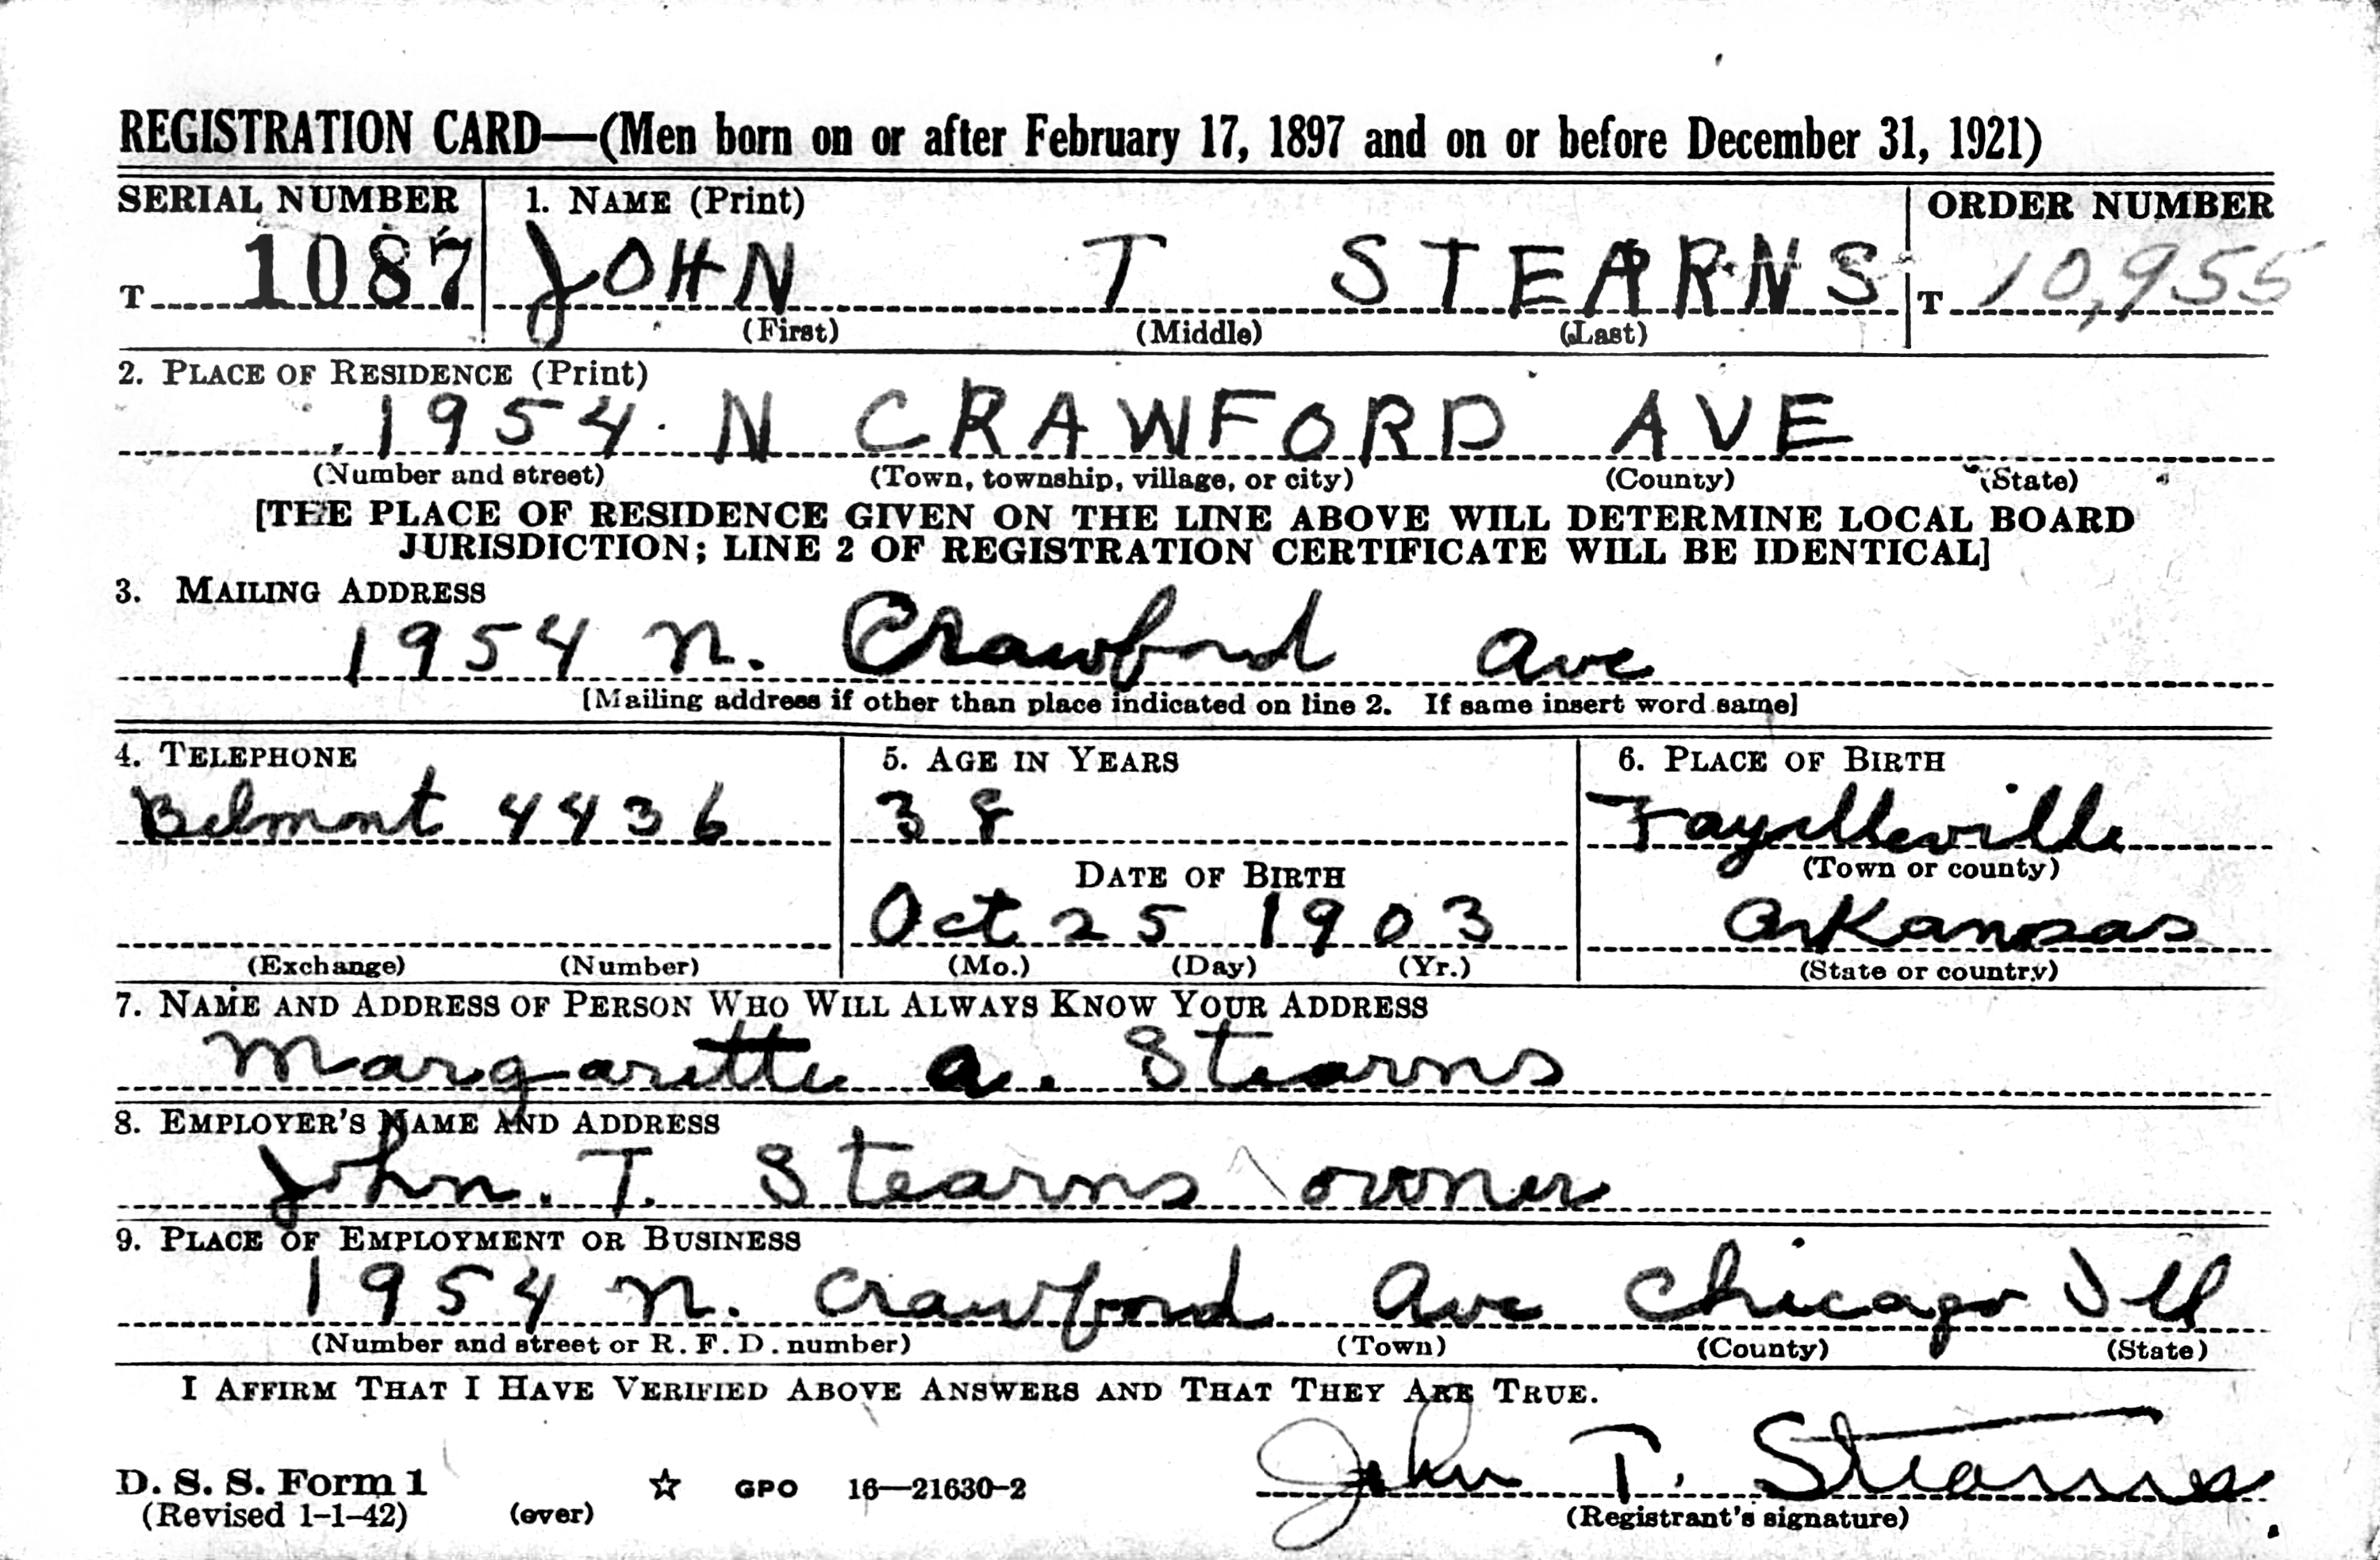 REGISTRATION CARD—(Men born on or after February 17, 1897 and on or before December 31, 1921)
SERIAL NUMBER 1. NAME (Print) ORDER NUMBER
T 1087 JOHN T STEARNS T 10,955
(First) (Middle) (Last)
2. PLACE OF RESIDENCE (Print)
1954 N CRAWFORD AVE
(Number and street) (Town, township, village, or city) (County) (State)
[THE PLACE OF RESIDENCE GIVEN ON THE LINE ABOVE WILL DETERMINE LOCAL BOARD
JURISDICTION; LINE 2 OF REGISTRATION CERTIFICATE WILL BE IDENTICAL]
3. MAILING ADDRESS
1954 N. Crawford Ave
[Mailing address if other than place indicated on line 2. If same insert word same]
4. TELEPHONE 5. AGE IN YEARS 6. PLACE OF BIRTH
Belmont 4436 38 Fayetteville
DATE OF BIRTH (Town or county)
Oct 25 1903 Arkansas
(Exchange) (Number) (Mo.) (Day) (Yr.) (State or country)
7. NAME AND ADDRESS OF PERSON WHO WILL ALWAYS KNOW YOUR ADDRESS
Margarette A. Stearns
8. EMPLOYER'S NAME AND ADDRESS
John. T. Stearns owner
9. PLACE OF EMPLOYMENT OR BUSINESS
1954 N. Crawford Ave Chicago Ill
(Number and street or R. F. D. number) (Town) (County) (State)
I AFFIRM THAT I HAVE VERIFIED ABOVE ANSWERS AND THAT THEY ARE TRUE.
John T. Stearns
D. S. S. Form 1 ☆ GPO 16—21630-2
(Revised 1-1-42) (over) (Registrant's signature)